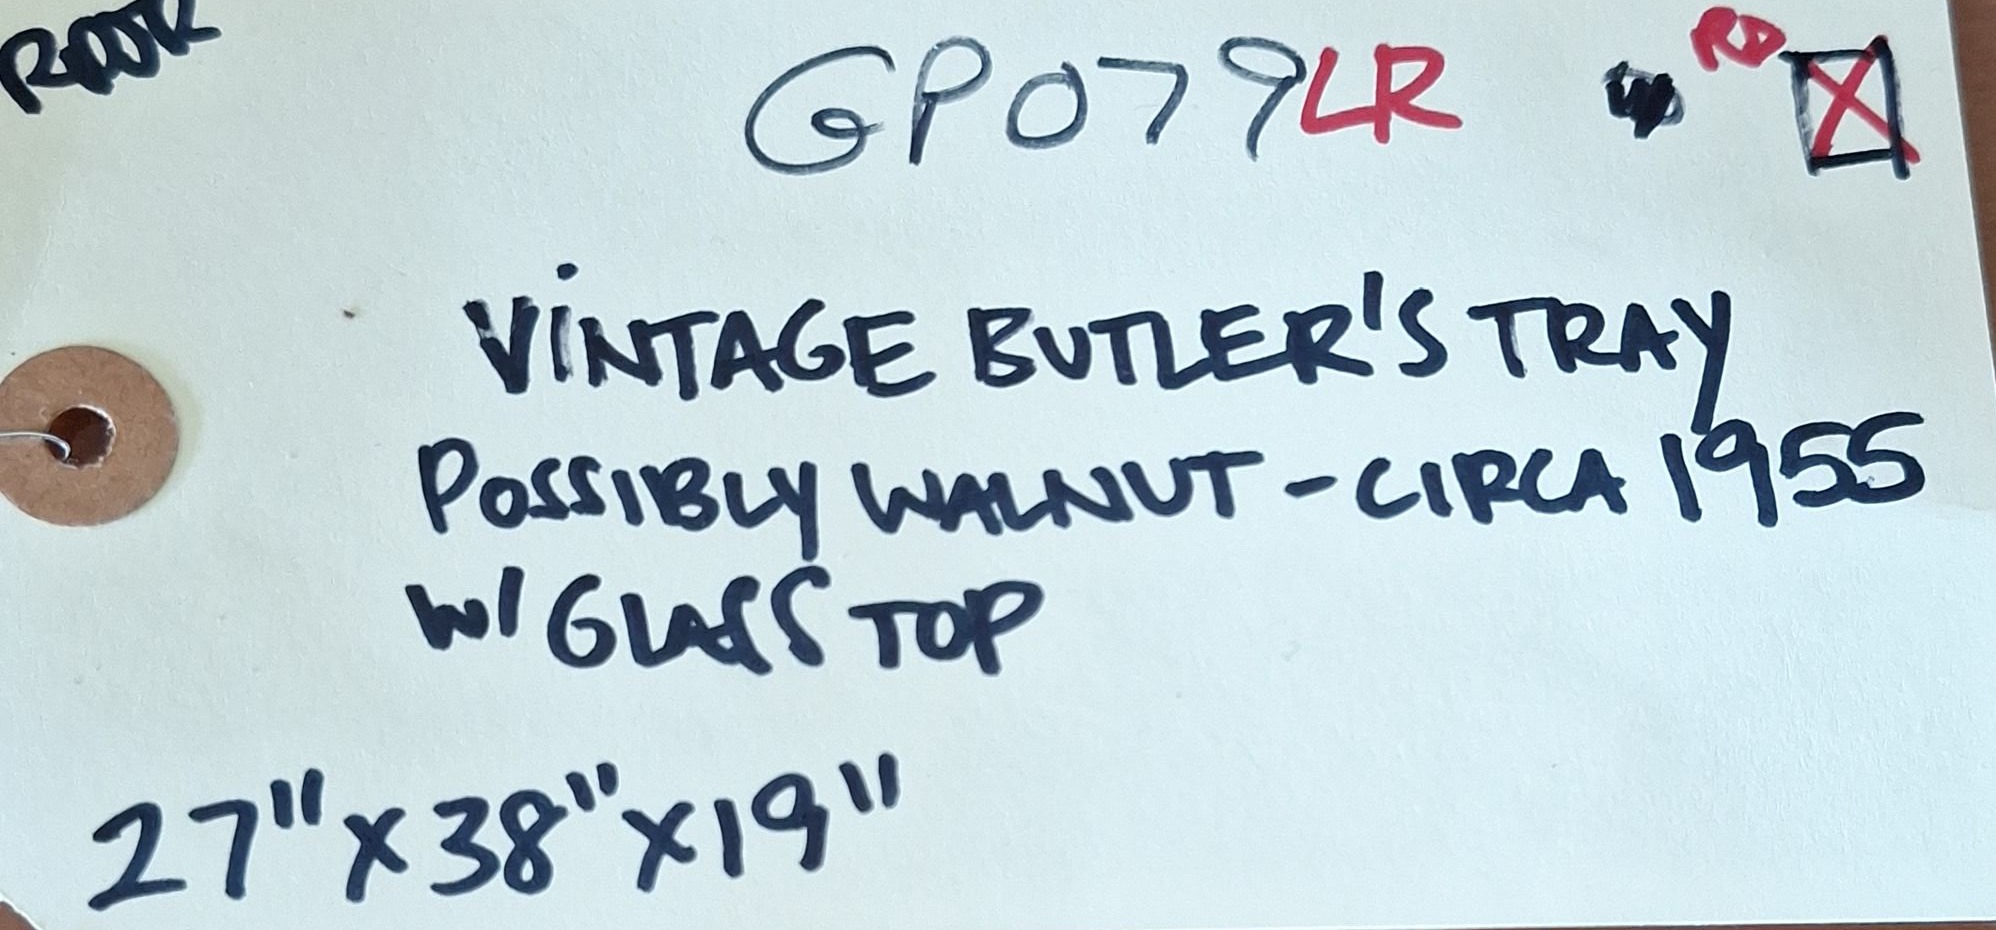 GP079LR
RD
VINTAGE BUTLER'S TRAY
POSSIBLY WALNUT - CIRCA 1955
W/ GLASS TOP
27" X 38" X 19"